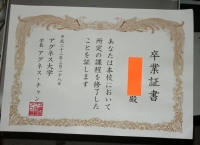 卒業証書
殿
あなたは本校において
所定の課程を修了した
ことを証します
平成二十一年三月二十八日
アグネス大学
学長 アグネス・チャン